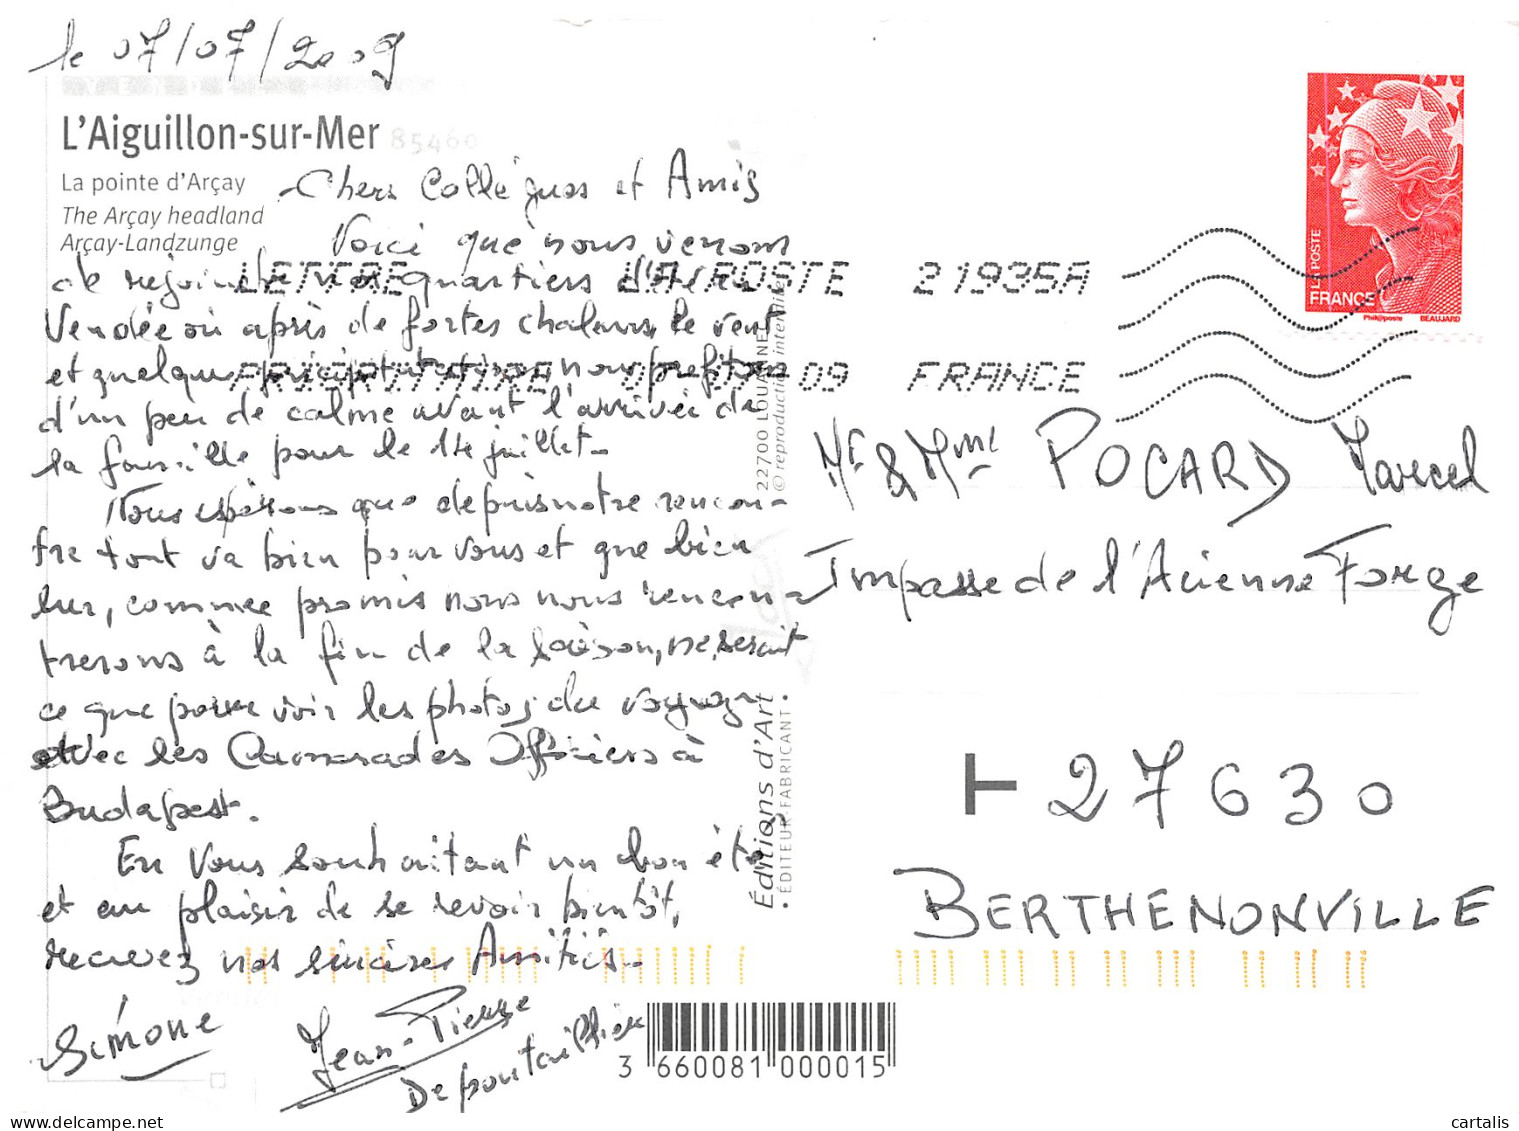 le 07/07/2009
L'Aiguillon-sur-Mer 85460
La pointe d'Arçay
The Arçay headland
Arçay-Landzunge
Chers Collègues et Amis
Voici que nous venons
de rejoindre nos quartiers d'été en
Vendée où après de fortes chaleurs, le vent
et quelques précipitations nous profitons
d'un peu de calme avant l'arrivée de
la famille pour le 14 juillet.
Nous espérons que depuis notre rencon-
tre tout va bien pour vous et que bien
sur, comme promis nous nous rencon-
trerons à la fin de la saison, ne serait
ce que pour voir les photos du voyage
avec les Camarades Officiers à
Budapest.
En vous souhaitant un bon été
et au plaisir de se revoir bientôt,
recevez nos sincères Amitiés.
Simone
Jean-Pierre
LETTRE LA POSTE 21935A
PRIORITAIRE 09 FRANCE
22700 LOUANNEC
© reproduction interdite
Éditions d'Art
ÉDITEUR-FABRICANT
LA POSTE
FRANCE
Phil@poste BEAUJARD
Mr & Mme POCARD Marcel
Impasse de l'Acienne Forge
T 27630
BERTHENONVILLE
3 660081 000015
cartalis